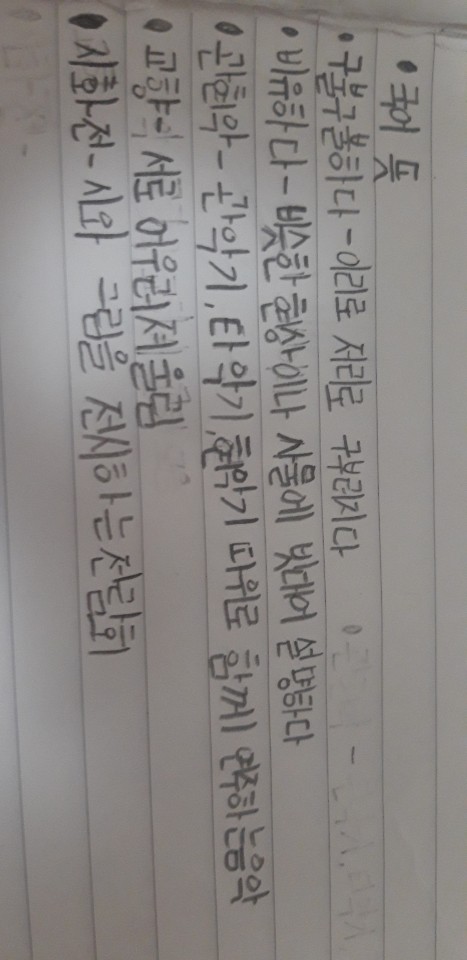 • 국어 뜻
• 구불구불하다 - 이리로 저리로 구부러지다
• 비유하다 - 비슷한 현상이나 사물에 빗대어 설명하다
• 관현악 - 관악기, 타악기, 현악기 따위로 함께 연주하는 음악
• 교향 서로 어우러져 울림
• 시화전 - 시와 그림을 전시하는 전람회